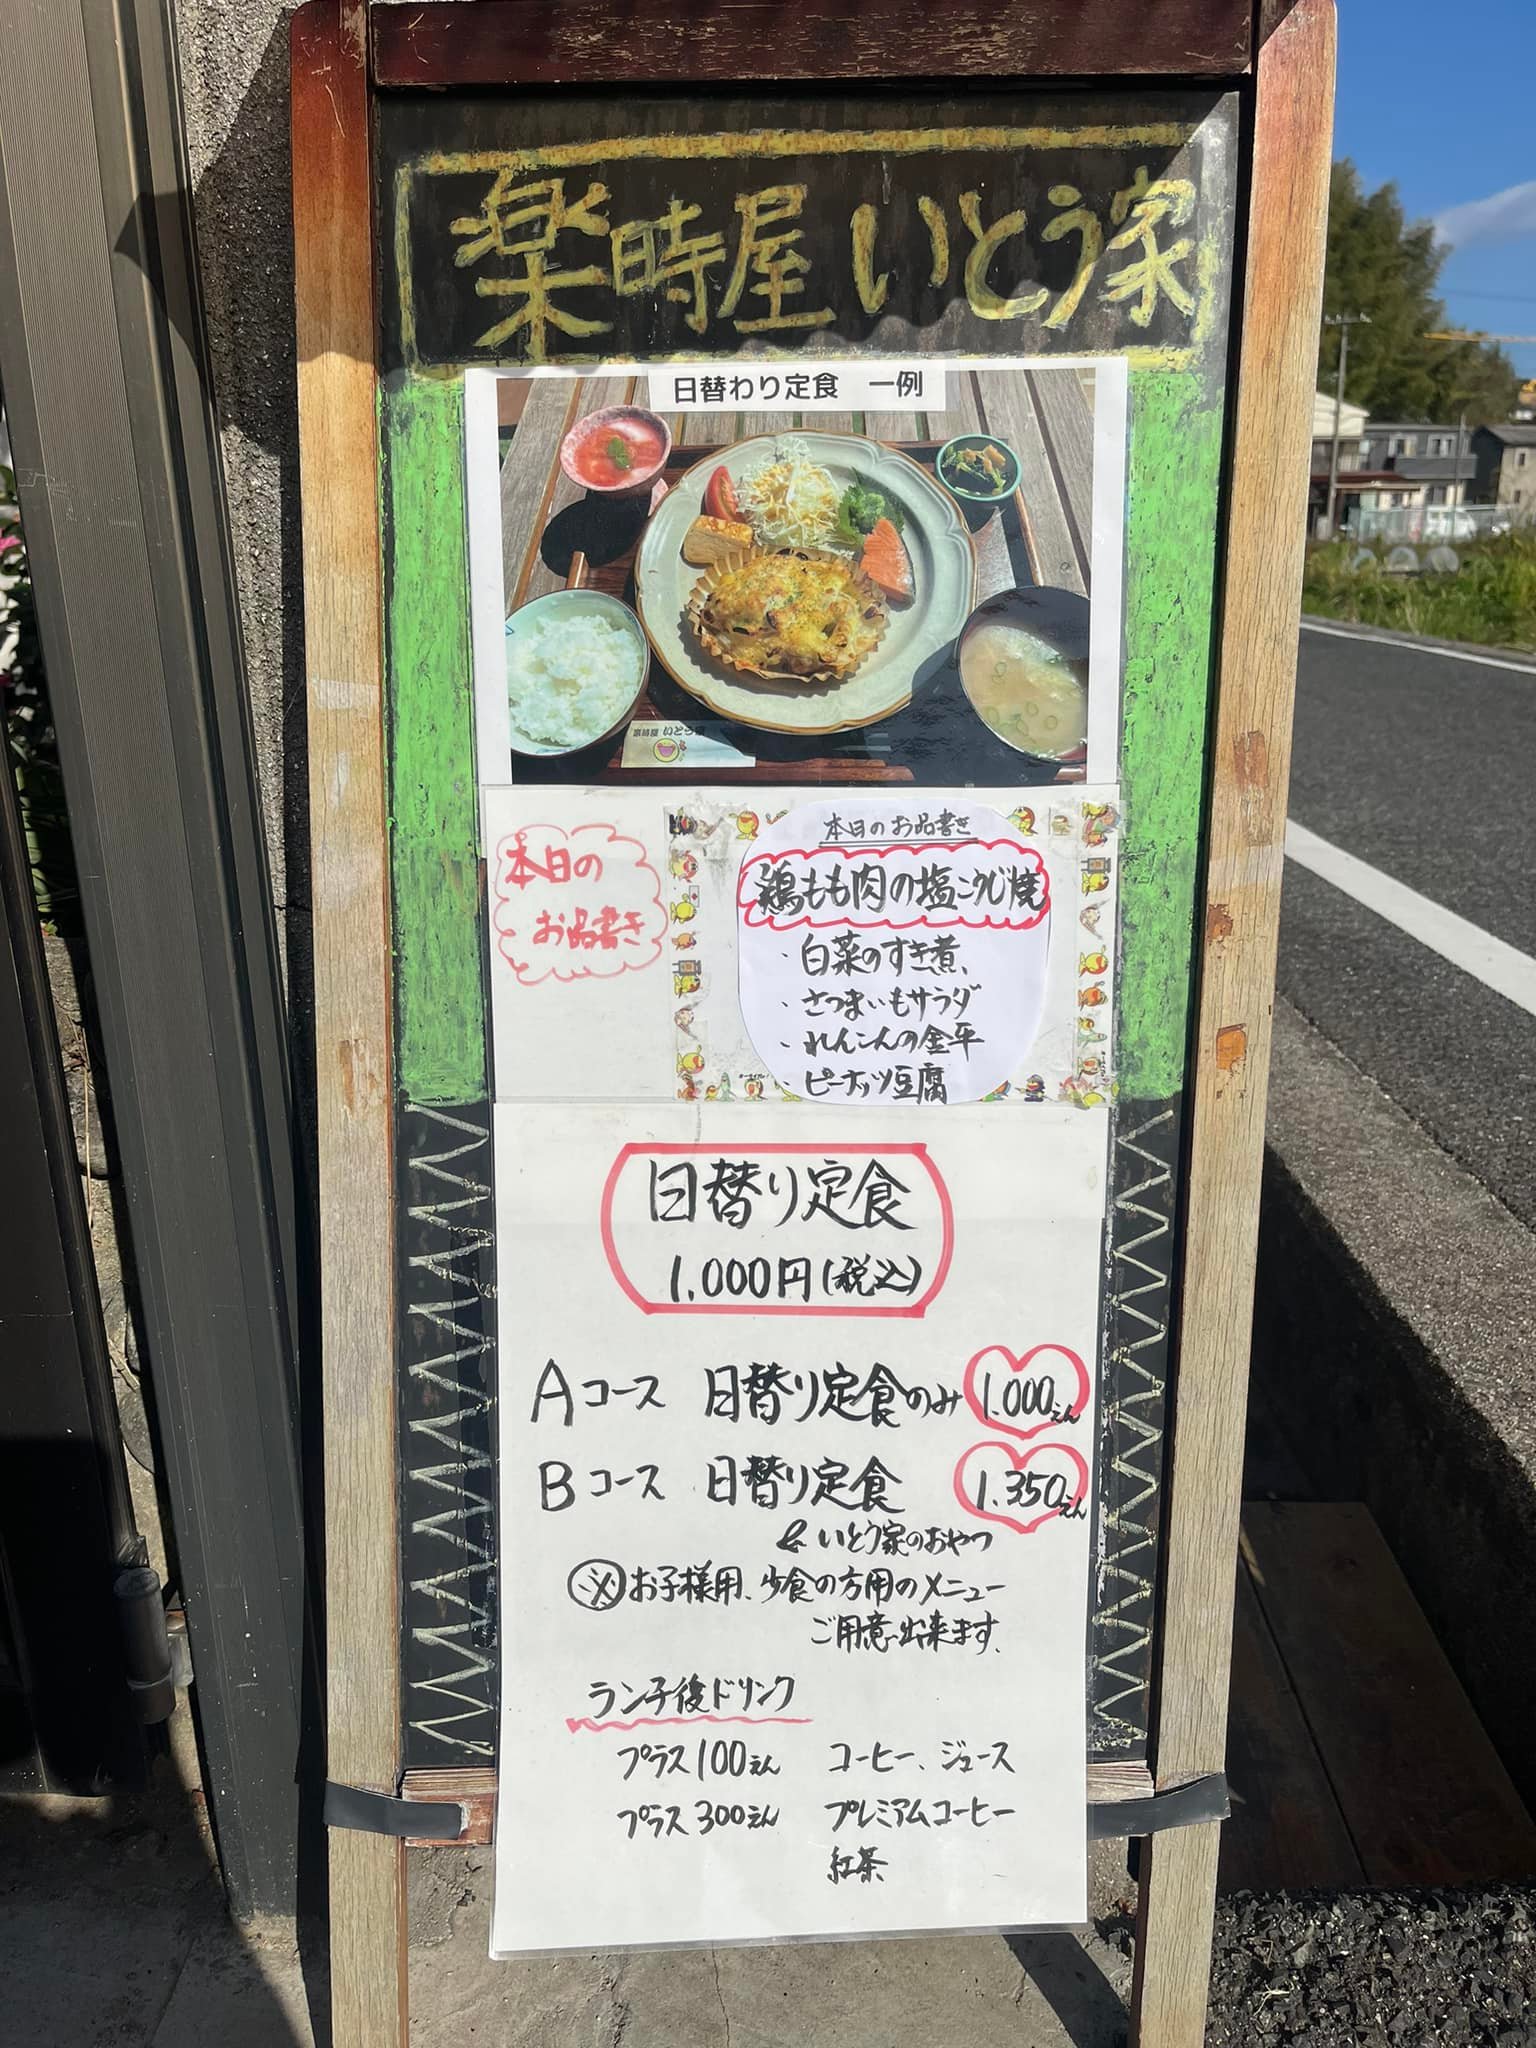 楽時屋 いとう家
日替わり定食 一例
楽時屋 いとう家
本日の
お品書き
本日のお品書き
鶏もも肉の塩こうじ焼
・白菜のすき煮
・さつまいもサラダ
・れんこんの金平
・ピーナッツ豆腐
日替り定食
1.000円(税込)
Aコース 日替り定食のみ 1.000えん
Bコース 日替り定食 1.350えん
& いとう家のおやつ
※お子様用、少食の方用のメニュー
ご用意出来ます。
ランチ後ドリンク
プラス100えん コーヒー、ジュース
プラス300えん プレミアムコーヒー
紅茶